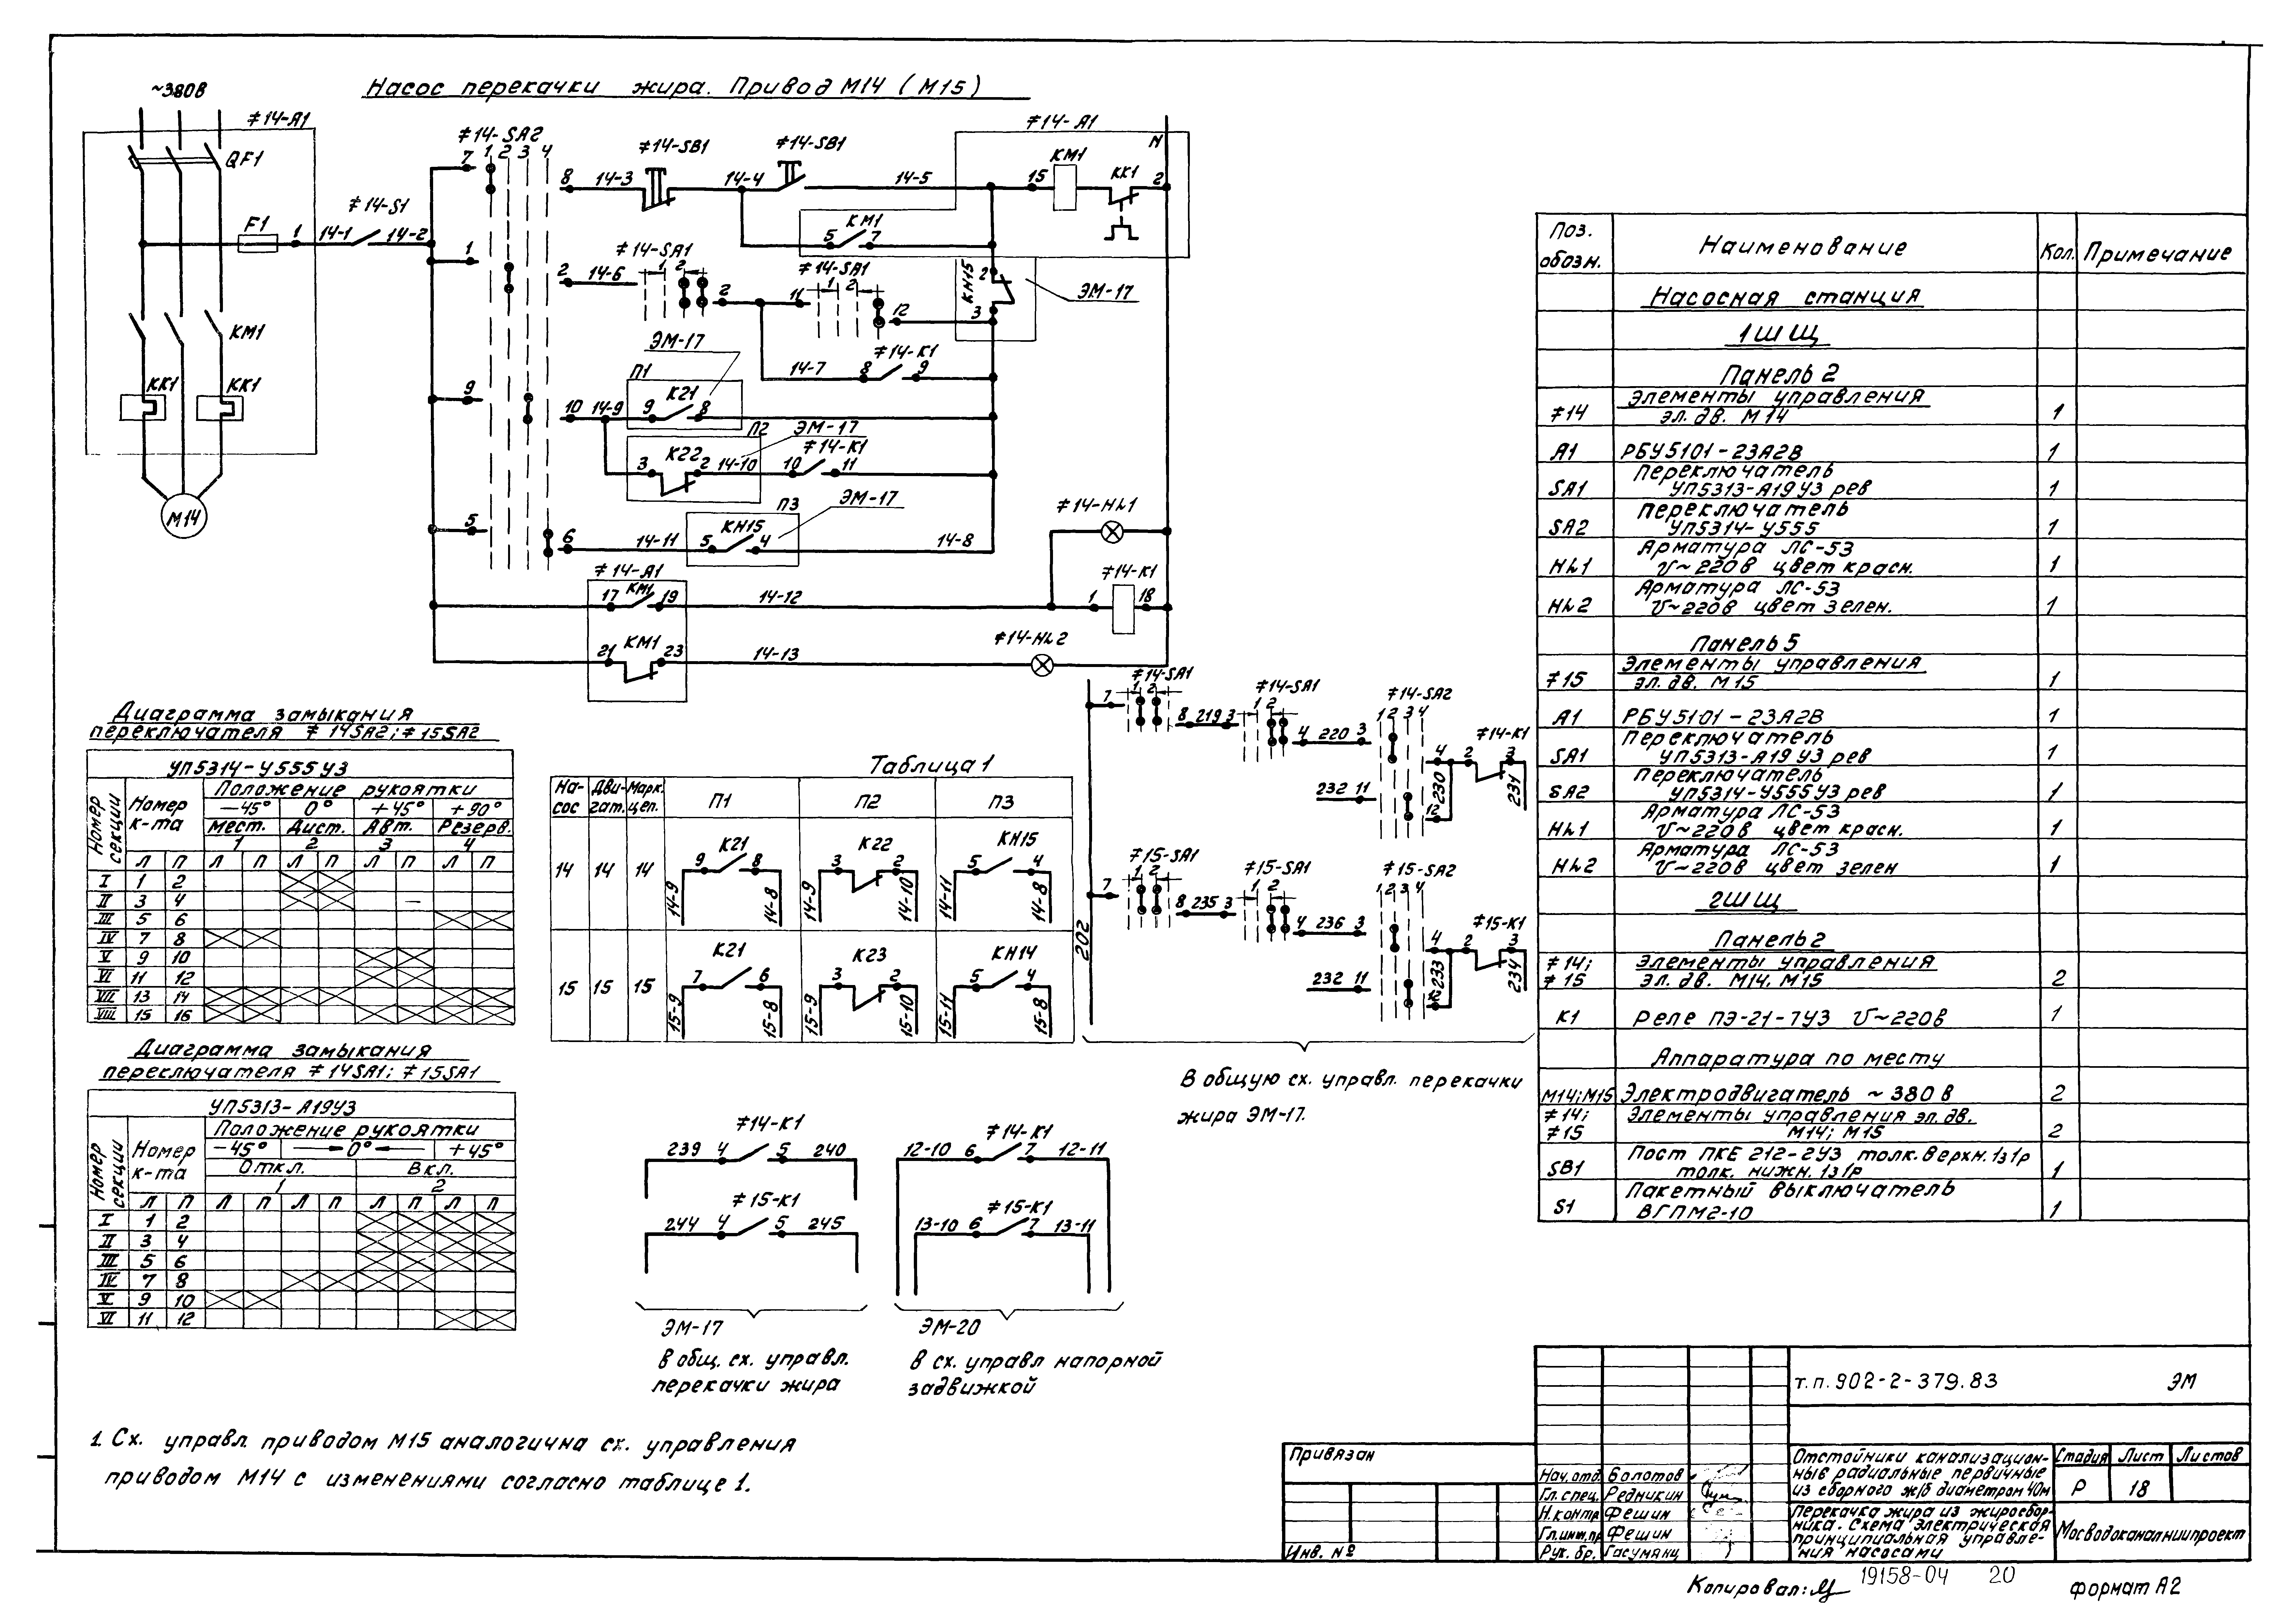 Насос перекачки жира. Привод М14 (М15)
~380В
≠14-А1
QF1
F1
1
14-1
≠14-S1
14-2
КМ1
КК1
КК1
М14
≠14-SA2
1 2 3 4
7
8
14-3
≠14-SB1
14-4
≠14-SB1
14-5
≠14-А1
N
15
КМ1
КК1
2
5
КМ1
7
1
2
14-6
≠14-SA1
1 2
2
11
≠14-SA1
1 2
12
КН15
2
3
ЭМ-17
14-7
8
≠14-К1
9
ЭМ-17
П1
9
10
14-9
9
К21
8
П2
ЭМ-17
3
К22
2
14-10
10
≠14-К1
11
П3
ЭМ-17
5
6
14-11
5
КН15
4
14-8
≠14-HL1
≠14-А1
17
КМ1
19
14-12
1
≠14-К1
18
21
КМ1
23
14-13
≠14-HL2
Диаграмма замыкания
переключателя ≠14SA2; ≠15SA2
УП5314-У555У3
Номер секции
Номер к-та
Положение рукоятки
-45° 0° +45° +90°
Мест. Дист. Авт. Резерв.
1 2 3 4
Л П Л П Л П Л П Л П
I 1 2
II 3 4
III 5 6
IV 7 8
V 9 10
VI 11 12
VII 13 14
VIII 15 16
Диаграмма замыкания
переключателя ≠14SA1; ≠15SA1
УП5313-А19У3
Номер секции
Номер к-та
Положение рукоятки
-45° 0° +45°
Откл. Вкл.
1 2
Л П Л П Л П Л П Л П
I 1 2
II 3 4
III 5 6
IV 7 8
V 9 10
VI 11 12
Таблица 1
На- Дви- Марк.
сос гат. цеп. П1 П2 П3
14 14 14
9 К21 8
14-9 14-8
3 К22 2
14-9 14-10
5 КН15 4
14-11 14-8
15 15 15
7 К21 6
15-9 15-8
3 К23 2
15-9 15-10
5 КН14 4
15-11 15-8
202
7
≠14-SA1
1 2
8 219 3
≠14-SA1
1 2
4 220 3
≠14-SA2
1 2 3 4
4
2
≠14-К1
3
231
230
232 11
12
7
≠15-SA1
1 2
8 235 3
≠15-SA1
1 2
4 236 3
≠15-SA2
1 2 3 4
4
2
≠15-К1
3
234
233
232 11
12
В общую сх. управл. перекачки
жира ЭМ-17.
≠14-К1
239 4 5 240
≠15-К1
244 4 5 245
ЭМ-17
В общ. сх. управл.
перекачки жира
≠14-К1
12-10 6 7 12-11
≠15-К1
13-10 6 7 13-11
ЭМ-20
В сх. управл напорной
задвижкой
1. Сх. управл. приводом М15 аналогична сх. управления
приводом М14 с изменениями согласно таблице 1.
Поз. обозн. Наименование Кол. Примечание
Насосная станция
1ШЩ
Панель 2
≠14 Элементы управления
эл. дв. М14 1
А1 РБУ5101-23А2В 1
Переключатель
SA1 УП5313-А19У3 рев 1
Переключатель
SA2 УП5314-У555 1
Арматура ЛС-53
HL1 U~220В цвет красн. 1
Арматура ЛС-53
HL2 U~220В цвет зелен. 1
Панель 5
Элементы управления
≠15 эл. дв. М15 1
А1 РБУ5101-23А2В 1
Переключатель
SA1 УП5313-А19У3 рев 1
Переключатель
SA2 УП5314-У555У3 рев 1
Арматура ЛС-53
HL1 U~220В цвет красн. 1
Арматура ЛС-53
HL2 U~220В цвет зелен 1
2ШЩ
Панель 2
≠14; Элементы управления
≠15 эл. дв. М14, М15 2
К1 Реле ПЭ-21-7У3 U~220В 1
Аппаратура по месту
М14;М15 Электродвигатель ~380В 2
≠14; Элементы управления эл. дв.
≠15 М14; М15 2
Пост ПКЕ 212-2У3 толк. верхн. 1з1р
SB1 толк. нижн. 1з1р 1
Пакетный выключатель
S1 ВГПМ2-10 1
Привязан
Инв. №
Нач. отд. Болотов
Гл. спец. Редникин
Н. контр Фешин
Гл.инж.пр Фешин
Рук. бр. Гасумянц
т.п. 902-2-379.83 ЭМ
Отстойники канализацион-
ные радиальные первичные
из сборного ж/б диаметром 40м
Стадия Лист Листов
Р 18
Перекачка жира из жиросбор-
ника. Схема электрическая
принципиальная управле-
ния насосами
Мосводоканалниипроект
Копировал:
19158-04 20
формат А2